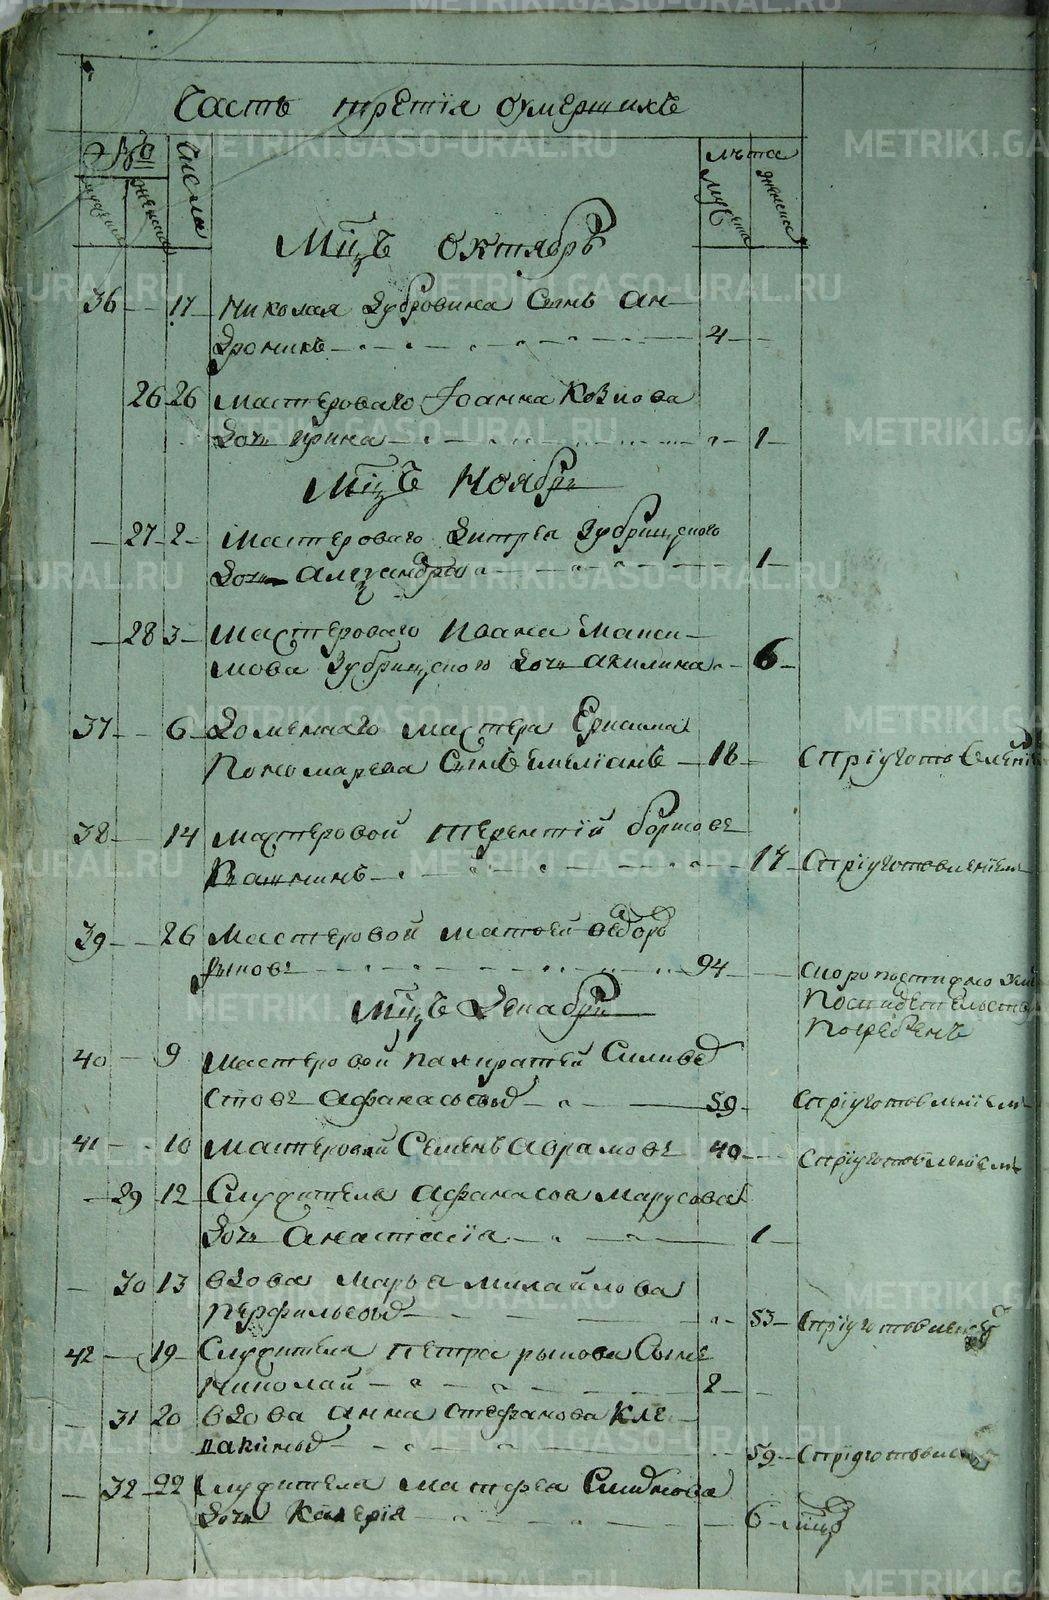 Часть третїя оумершихъ
№
Числа
лѣта
мужеска
женска
мужеска
женска
Мцъ Октябрь
36 17 Николая Зубровина Сынъ Ан
дроникъ 4
26 26 Мастероваго Іоанна Козлова
дочь Ирина 1
Мцъ Ноябрь
27 2 Мастероваго Дмитрея Зубрицкого
дочь Александра 1
28 3 Мастероваго Ивана Макси
мова Зубрицкого дочь Акилина 6
37 6 Доменнаго мастера
Пономарева Сынъ Емелїанъ 18 Спрїуготовленїемъ
38 14 Мастеровой Терентїй Борисовъ
17 Спрїуготовленїемъ
39 26 Мастеровой Матвей Ѳедоро
Рыковъ 94 Скоропостижно
Посвидетельству
Погребенъ
Мцъ Декабрь
40 9 Мастеровой Панкратей Силиве
стовъ Афанасьевъ 59 Спрїуготовленїемъ
41 10 Мастеровой Семенъ Аврамовъ 40 Спрїуготовленїемъ
29 12 Служитель Афанасов Марусова
дочь Анастасїя 1
30 13 Вдова Марья Михайлова
Перфильева 53 Спрїуготовленїе
42 19 Служителя Петра Рыкова Сынъ
Николай 2
31 20 Вдова Анна Стефанова Кле
пакина 59 Спрїуготовле
32 22 Служителя Матфеа
дочь Калерїя 6 мцъ
METRIKI.GASO-URAL.RU